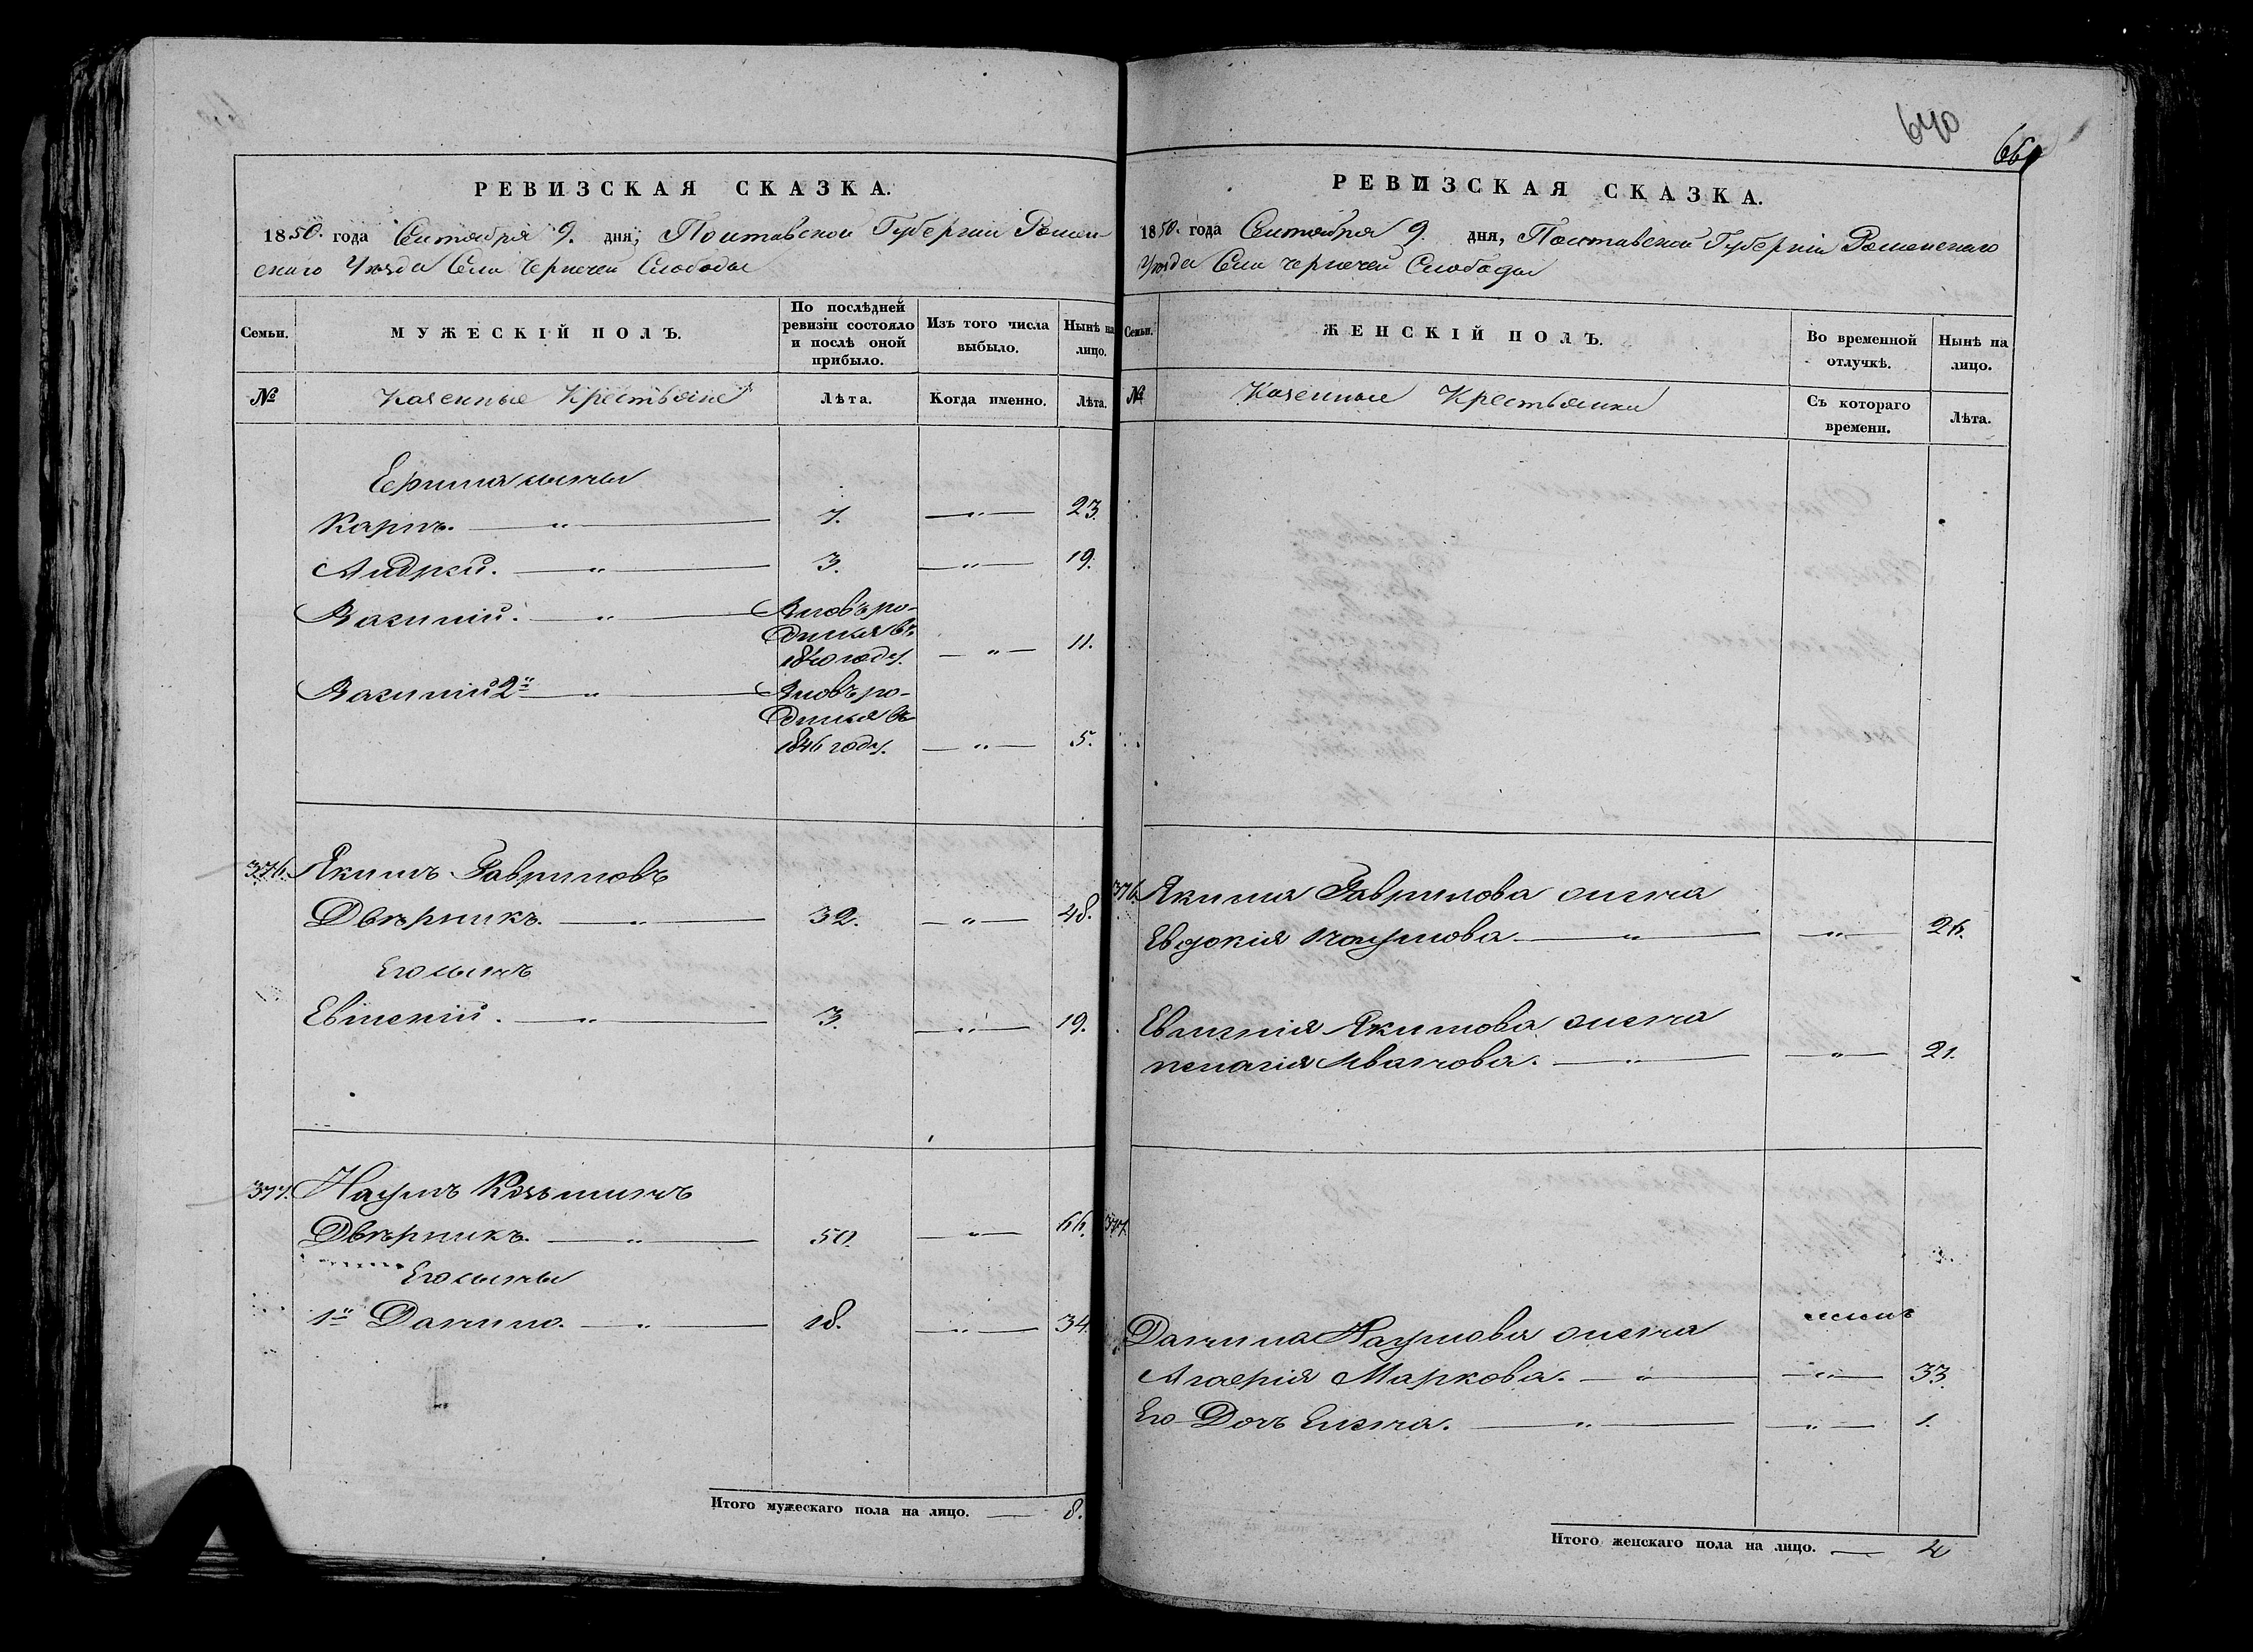 РЕВИЗСКАЯ СКАЗКА.
1850. года Сентября 9. дня, Полтавской Губерніи Ромен-
скаго Уѣзда Села Чернечей Слободы
Семьи.
МУЖЕСКІЙ ПОЛЪ.
По послѣдней ревизіи состояло и послѣ оной прибыло.
Изъ того числа выбыло.
Нынѣ на лицо.
№
Казенные Крестьяне
Лѣта.
Когда именно.
Лѣта.
Карпъ. — " — 7. — " — 23.
Андрей. — " — 3. — " — 19.
Василій. — " — Вновь ро-
дился въ
1840 году. — " — 11.
Василій 2й — " — Вновь ро-
дился въ
1846 году. — " — 5.
376. Якимъ Гавриловъ
Двѣрникъ. — " — 32. — " — 48.
Его сынъ
3. — " — 19.
377. Наумъ Козьминъ
Двѣрникъ. — " — 50. — " — 66.
Его сыны
1й Данило. — " — 18. — " — 34.
Итого мужескаго пола на лицо. — 8.
640
РЕВИЗСКАЯ СКАЗКА.
1850. года Сентября 9. дня, Полтавской Губерніи Роменскаго
Уѣзда Села Чернечей Слободы
Семьи.
ЖЕНСКІЙ ПОЛЪ.
Во временной отлучкѣ.
Нынѣ на лицо.
№
Казенные Крестьянки
Съ котораго времени.
Лѣта.
376. Якима Гаврилова жена
Евдокія Наумова — " — " —
Якимова жена
Пелагія Иванова. — " — " — 21.
377.
Данила Наумова жена
Агафія Маркова. — " — " — 33.
Его Дочь Елена. — " — " — 1.
Итого женскаго пола на лицо. — 4